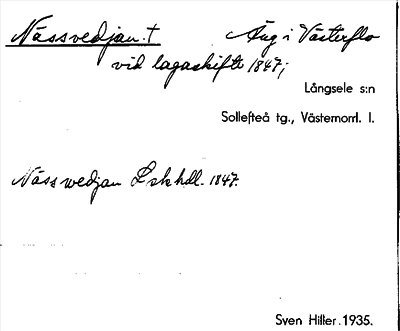 Nässvedjan. † Äng i Västerflo
vid lagaskifte 1847;
Långsele s:n
Sollefteå tg., Västernorrl. l.
Näss wedjan Lskhdl. 1847.
Sven Hiller. 1935.